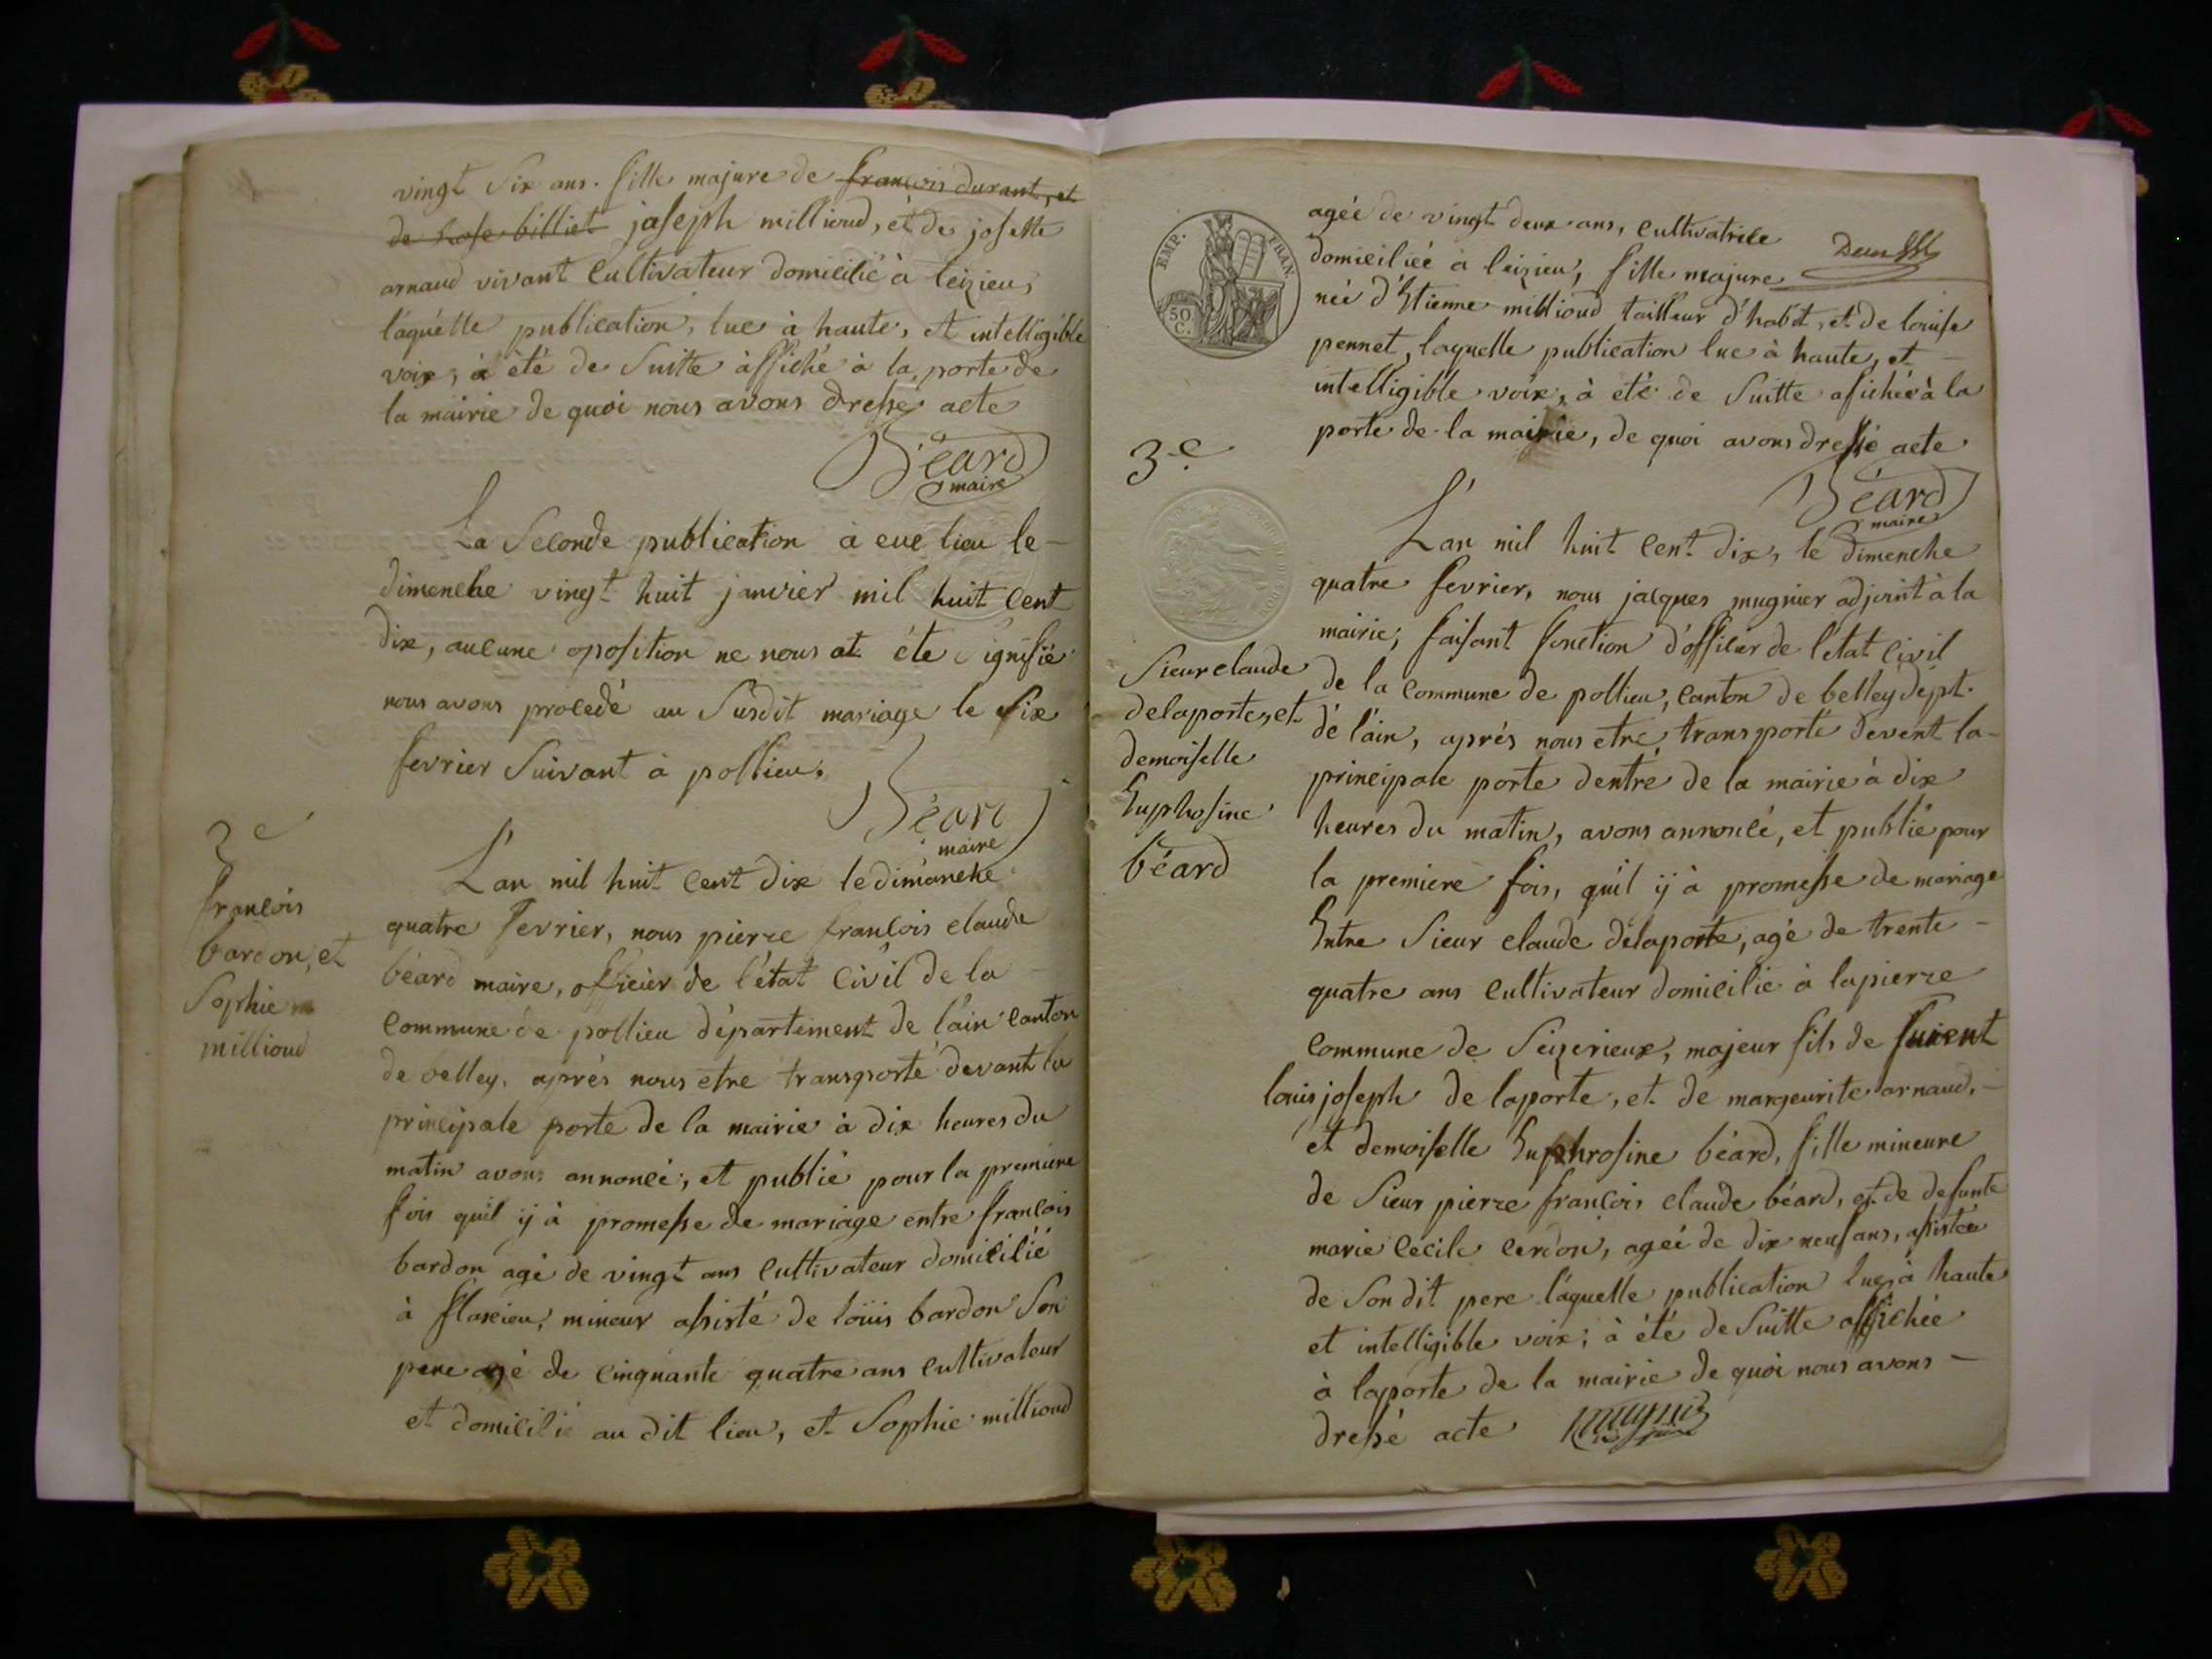 vingt Six ans. fille majure de françois durant, et
de rose billiet joseph millioud, èt de josette
arnaud vivant Cultivateur domicilié à leizieu,
láquélle publication, luë à haute, et intelligible
voix; à èté de Suitte àffiché à la porte de
la mairie de quoi nous avons dressé acte
Béard
maire
La Seconde publication à eue lieu le -
dimenche vingt huit janvier mil huit Cent
dix, aucune oposition ne nous at éte Signifié
nous avons procedé au Susdit mariage le Six
fevrier Suivant à pollieu.
Béard
maire
3e
françois
bardon, et
Sophie
millioud
L'an mil huit Cent dix le dimanche
quatre fevrier, nous pierre françois claude
béard maire, officier de l'état Civil de la -
Commune de pollieu département de l'ain canton
de belley. aprés nous etre transporté devant la
principale porte de la mairie à dix heures du
matin avons annoncé, et publié pour la premiere
fois quil ÿ à promesse de mariage entre françois
bardon agé de vingt ans Cultivateur domicilié
à flaxieu, mineur assisté de loüis bardon Son
pere agé de Cinquante quatre ans cultivateur
et domicilié au dit lieu, et Sophie millioud
EMP. FRAN.
50
C.
agéé de vingt deux ans, Cultivatrice
domiciliéé a leizieu, fille majure
néé d'Etienne millioud tailleur d'habit, et de louise
pennet, laquelle publication luë à haute, et -
intelligible voix, à été de Suitte afichéé à la
porte de la mairie, de quoi avons dressé acte
Béard
maire
3e
Sieur claude
delaporte, et
demoiselle
Euphosine
béard
L'an mil huit Cent dix, le dimenche
quatre fevrier, nous jacques mugnier adjoint à la
mairie, faisant fonction d'officier de l'état Civil
de la Commune de pollieu, Canton de belley dépt.
dé l'áin, aprés nous etré transporté devent la -
principale porte dentré de la mairie à dix
heures du matin, avons annoncé, et publié pour
la premiere fois, quil ÿ à promesse de mariage
Entre Sieur claude delaporte, agé de trente -
quatre ans Cultivateur domicilié à lapierre
Commune de Seizerieux, majeur fils de
louis joseph de laporte, et de margeurite arnaud, -
et demoiselle Euphrosine béard, fille mineure
de Sieur pierre françois claude béard, et de defunte
marie Cécile Cerdon, agéé de dix neuf ans, assistée
de Son dit pere láquelle publication luë à haute
et intelligible voix; à été de Suitte affichée
à laporte de la mairie de quoi nous avons -
dressé acte mugnier